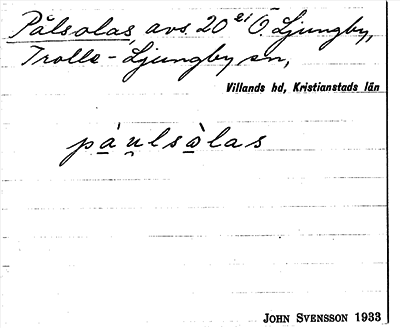 Pålsolas, avs. 20 ei Ö. Ljungby,
Trolle-Ljungby sn,
Villands hd, Kristianstads län
pàu̯lsòlas
JOHN SVENSSON 1933